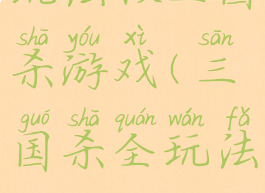 shā yóu xì sān
杀游戏(三
guó shā quán wán fǎ
国杀全玩法